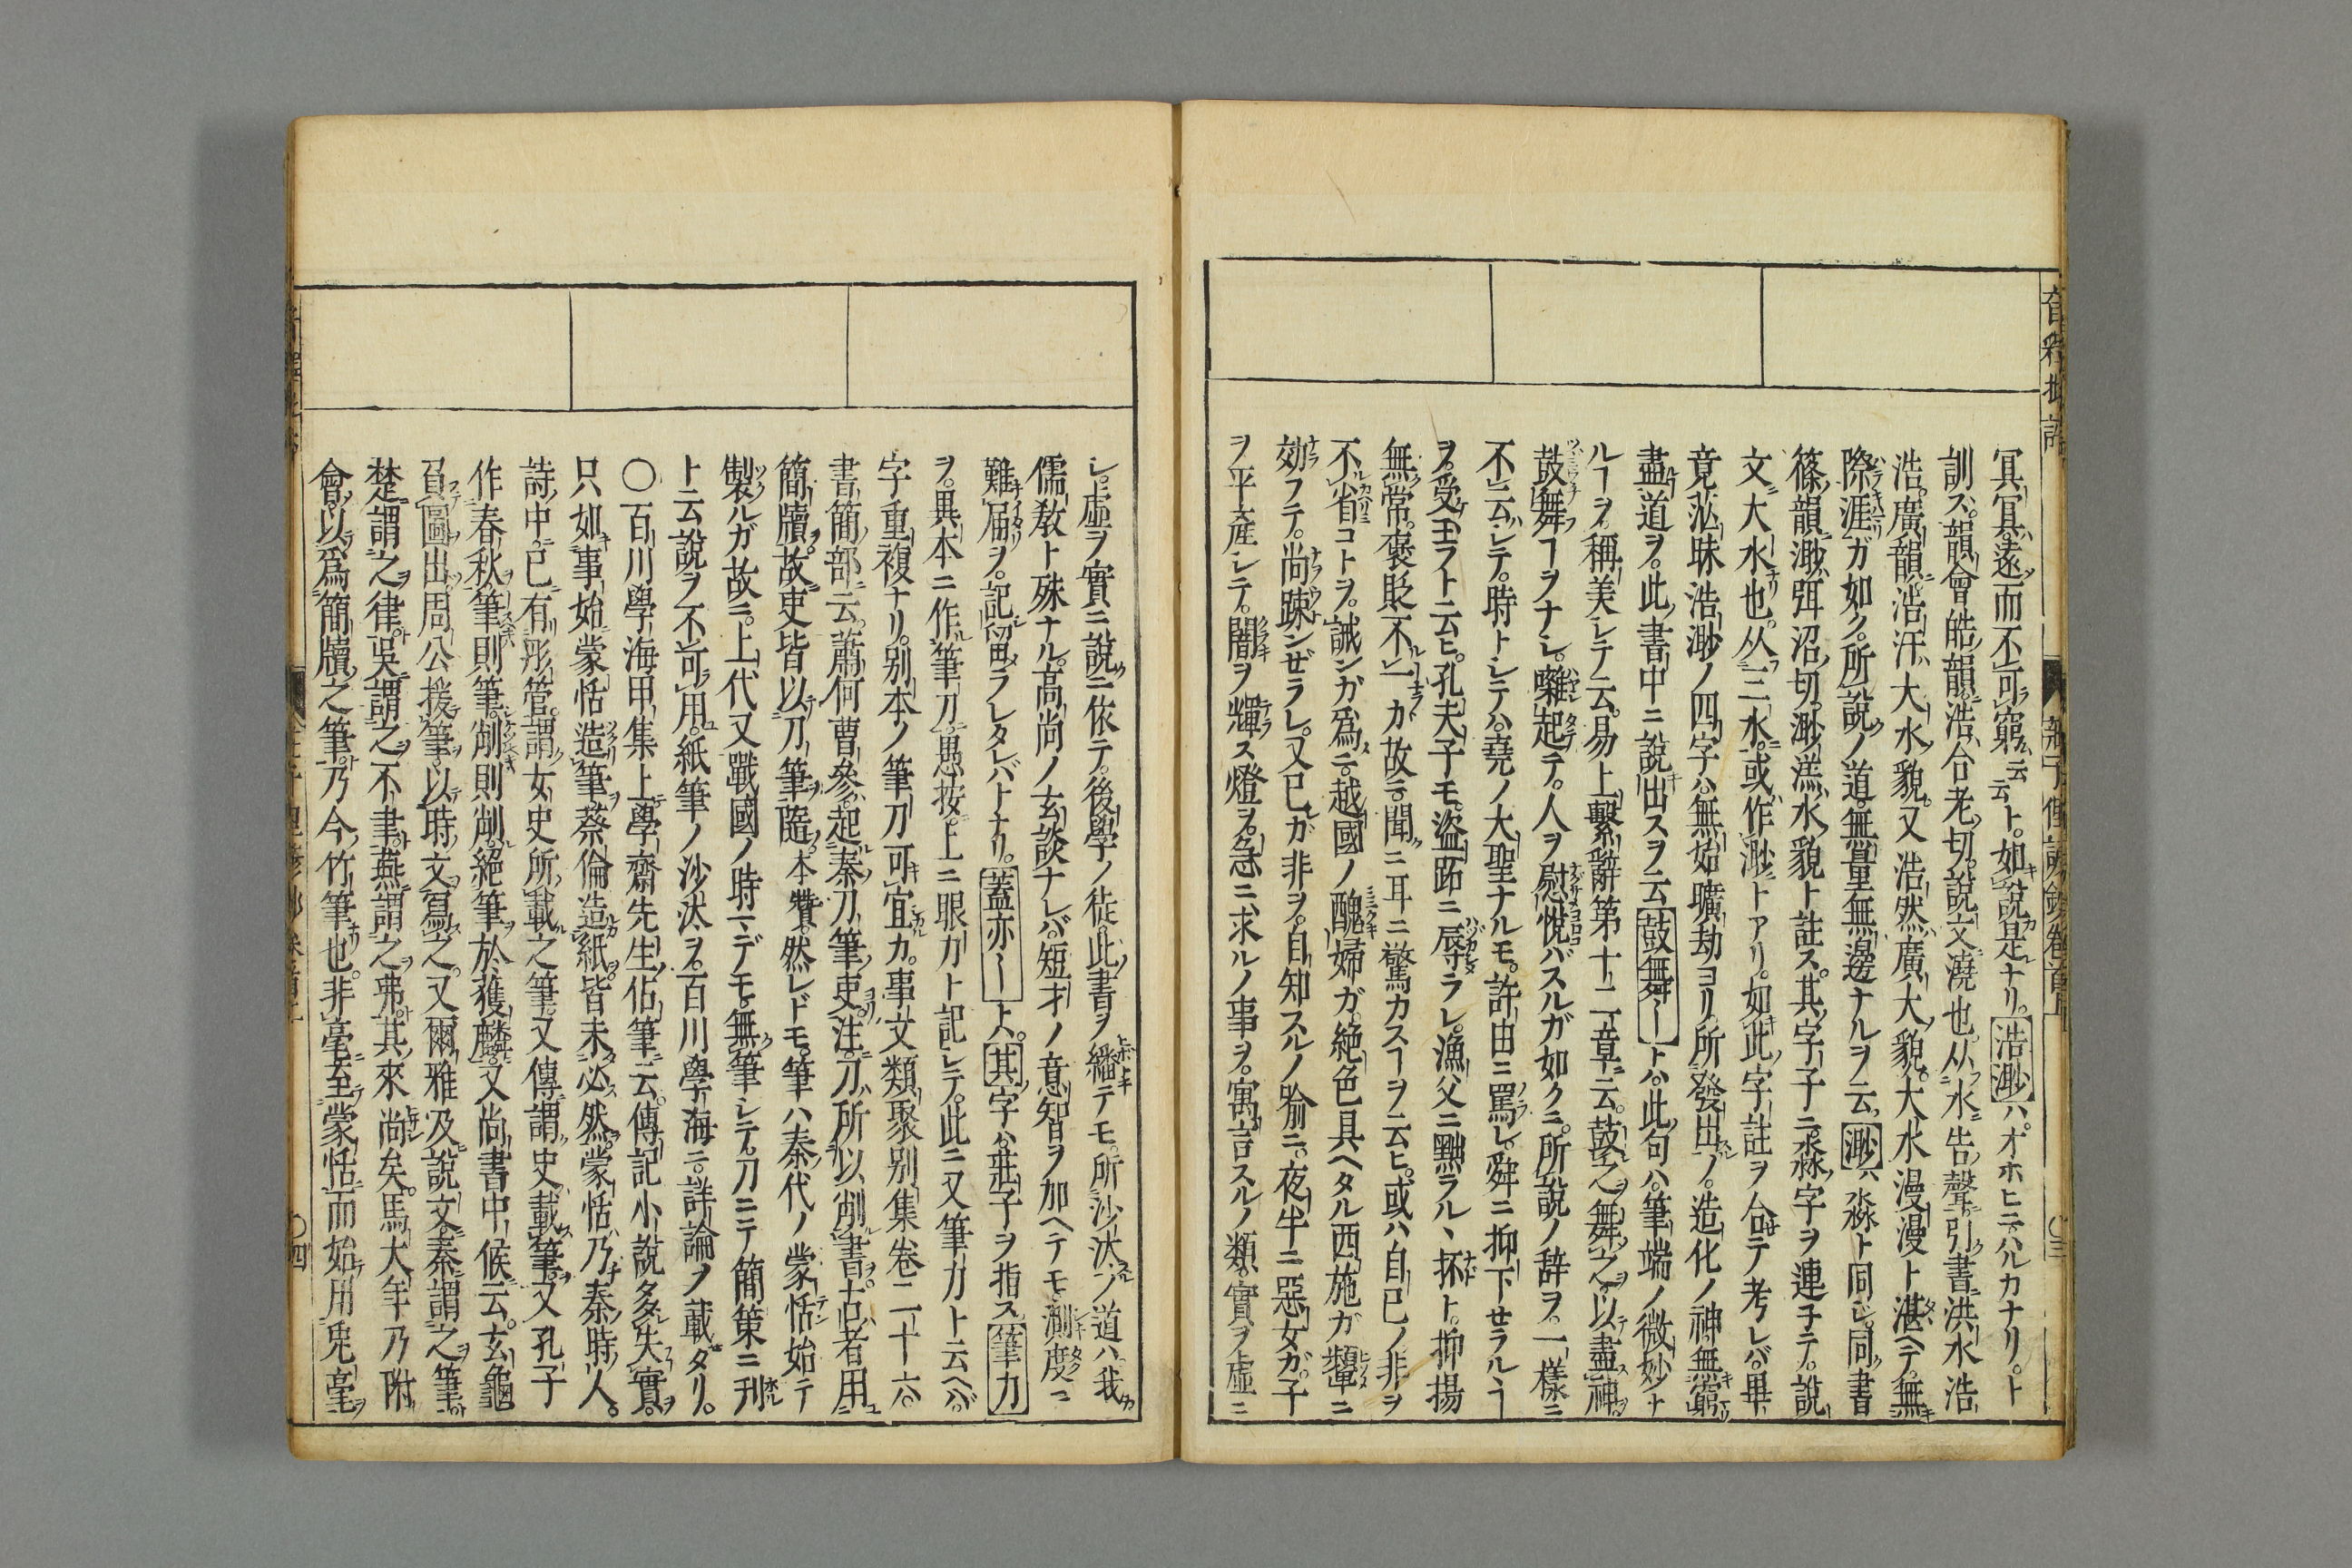 冥冥遠而不可窮云云ト如說是ナリ。浩渺ハオホヒニハルカナリ。ト
訓ス。韻會皓韻。浩合老切。說文澆也。从水告聲。引書洪水浩
浩。廣韻。浩汗大水貌。又浩然廣大貌。大水漫漫ト湛ヘテ。無
際涯ガ如ク。所說ノ道。無量無邊ナルヲ云。渺ハ淼ト同シ。同書
篠韻。渺弭沼切。渺渺水貌ト註ス。其字子ニ淼字ヲ連子テ。說
文大水也。从三水。或作渺トアリ。如此字註ヲ合テ考レバ。畢
竟茫昧浩渺ノ四字ハ。無始曠劫ヨリ。所發出ノ。造化ノ神無窮
盡道ヲ。此書中ニ說出スヲ云。鼓舞ートハ。此句ハ。筆端ノ微妙ナ
ルヿヲ。稱美シテ云。易上繫辭第十二章云。鼓之舞之以盡神
鼓舞ヿヲナシ。囃起テ。人ヲ慰悅バスルガ如クニ。所說ノ辞ヲ。一樣ニ
不云シテ。時トシテハ。堯ノ大聖ナルモ。許由ニ罵シ。舜ニ抑下せラルヿ
ヲ。受玉ヲト云ヒ。孔夫子モ。盗跖ニ辱ラレ。漁父ニ黜ラル、抔ト。抑揚
無常。褒貶不一カ故ニ。聞ニ耳ニ驚カスヿヲ云ヒ。或ハ自己ノ非ヲ
不省コトヲ。誡ンガ爲ニ。越國ノ醜婦ガ。絶色具ヘタル西施ガ顰ニ
効フテ。尚疎ンぜラレ。又已ガ非ヲ。自知スルノ喩ニ。夜半ニ惡女ガ子
ヲ平產シテ。闇ヲ輝ス燈ヲ。急ニ求ルノ事ヲ。寓言スルノ類。實ヲ虛ニ
シ。虛ヲ實ニ說ニ依テ。後學ノ徒。此書ヲ繙テモ。所沙汰ノ道ハ我
儒教ト殊ナル。高尚ノ玄談ナレバ。短才ノ意智ヲ加ヘテモ測度ニ
難届ヲ。記留ラレタレバトナリ。蓋亦ートハ。其字ハ。莊子ヲ指ス筆力
ヲ。異本ニ作筆刀。愚按。上ニ眼力ト記シテ。此ニ又筆力ト云ヘバ。
字重複ナリ。別本ノ筆刀可宜カ。事文類聚別集卷二十六。
書簡部云。蕭何曹參。起秦刀筆吏。注。刀所以削書。古者用
簡牘。故吏皆以刀筆隨。本贊。然レドモ。筆ハ秦代ノ蒙恬始テ
製ルガ故ニ。上代又戰國ノ時マデモ。無筆シテ。刀ニテ簡策ニ刊
ト云說ヲ不可用。紙筆ノ沙汰ヲ。百川學海ニ。詳論ヲ載タリ。
〇百川學海甲集上學齋先生佔筆云。傳記小說多失實。
只如事始蒙恬造筆。蔡倫造紙。皆未必然。蒙恬乃秦時人。
詩中已有彤管。謂女史所載之筆。又傳謂史載筆。又孔子
作春秋。筆則筆。削則削。絕筆於獲麟。又尚書中候云。玄龜
負圖出。周公援筆以時文寫之。又爾雅及說文。秦謂之筆。
楚謂之律。吳謂之不聿。燕謂之弗。其來尚矣。馬大年乃附
會以爲簡牘之筆。乃今竹筆也。非毫。至蒙恬而始用兎毫